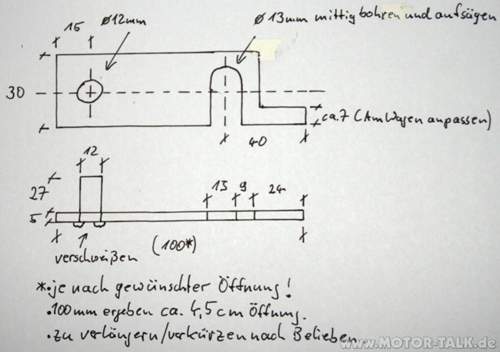 15
Ø12mm
Ø13mm mittig bohren und aufsägen
30
ca.7 (Am Wagen anpassen)
40
12
27
5
13
9
24
verschweißen
(100*)
*•je nach gewünschter Öffnung!
•100mm ergeben ca. 4,5cm Öffnung.
•zu verlängern/verkürzen nach Belieben
www.MOTOR-TALK.de